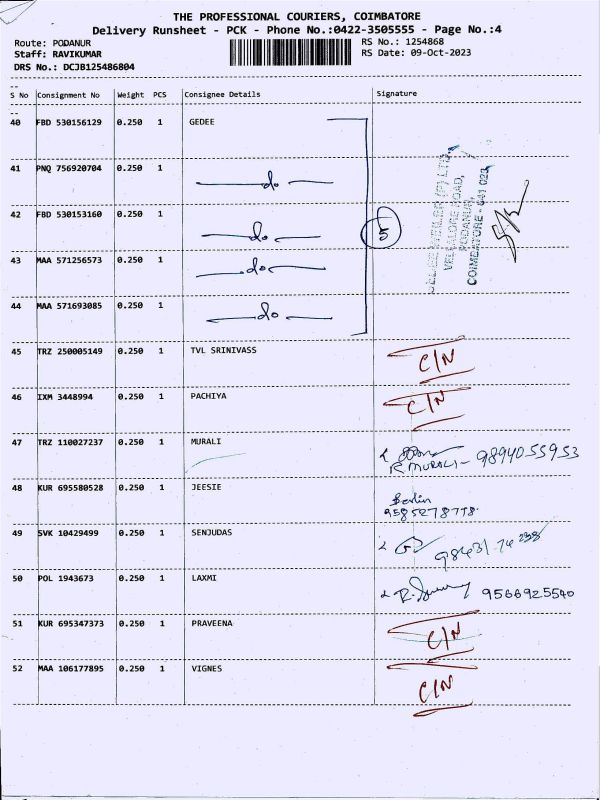 THE PROFESSIONAL COURIERS, COIMBATORE
Delivery Runsheet - PCK - Phone No.:0422-3505555 - Page No.:4
Route: PODANUR RS No.: 1254868
Staff: RAVIKUMAR RS Date: 09-Oct-2023
DRS No.: DCJB125486804
--
S No Consignment No Weight PCS Consignee Details Signature
--
40 FBD 530156129 0.250 1 GEDEE
41 PNQ 756920704 0.250 1 do
42 FBD 530153160 0.250 1 do
5
43 MAA 571256573 0.250 1 do
44 MAA 571693085 0.250 1 do
VELLALORE ROAD,
PODANUR,
COIMBATORE - 641 023
45 TRZ 250005149 0.250 1 TVL SRINIVASS C/N
46 IXM 3448994 0.250 1 PACHIYA C/N
47 TRZ 110027237 0.250 1 MURALI
R MURALI - 9894055953
48 KUR 695580528 0.250 1 JEESIE
9585278778
49 SVK 10429499 0.250 1 SENJUDAS
50 POL 1943673 0.250 1 LAXMI 9566925540
51 KUR 695347373 0.250 1 PRAVEENA C/N
52 MAA 106177895 0.250 1 VIGNES C/N